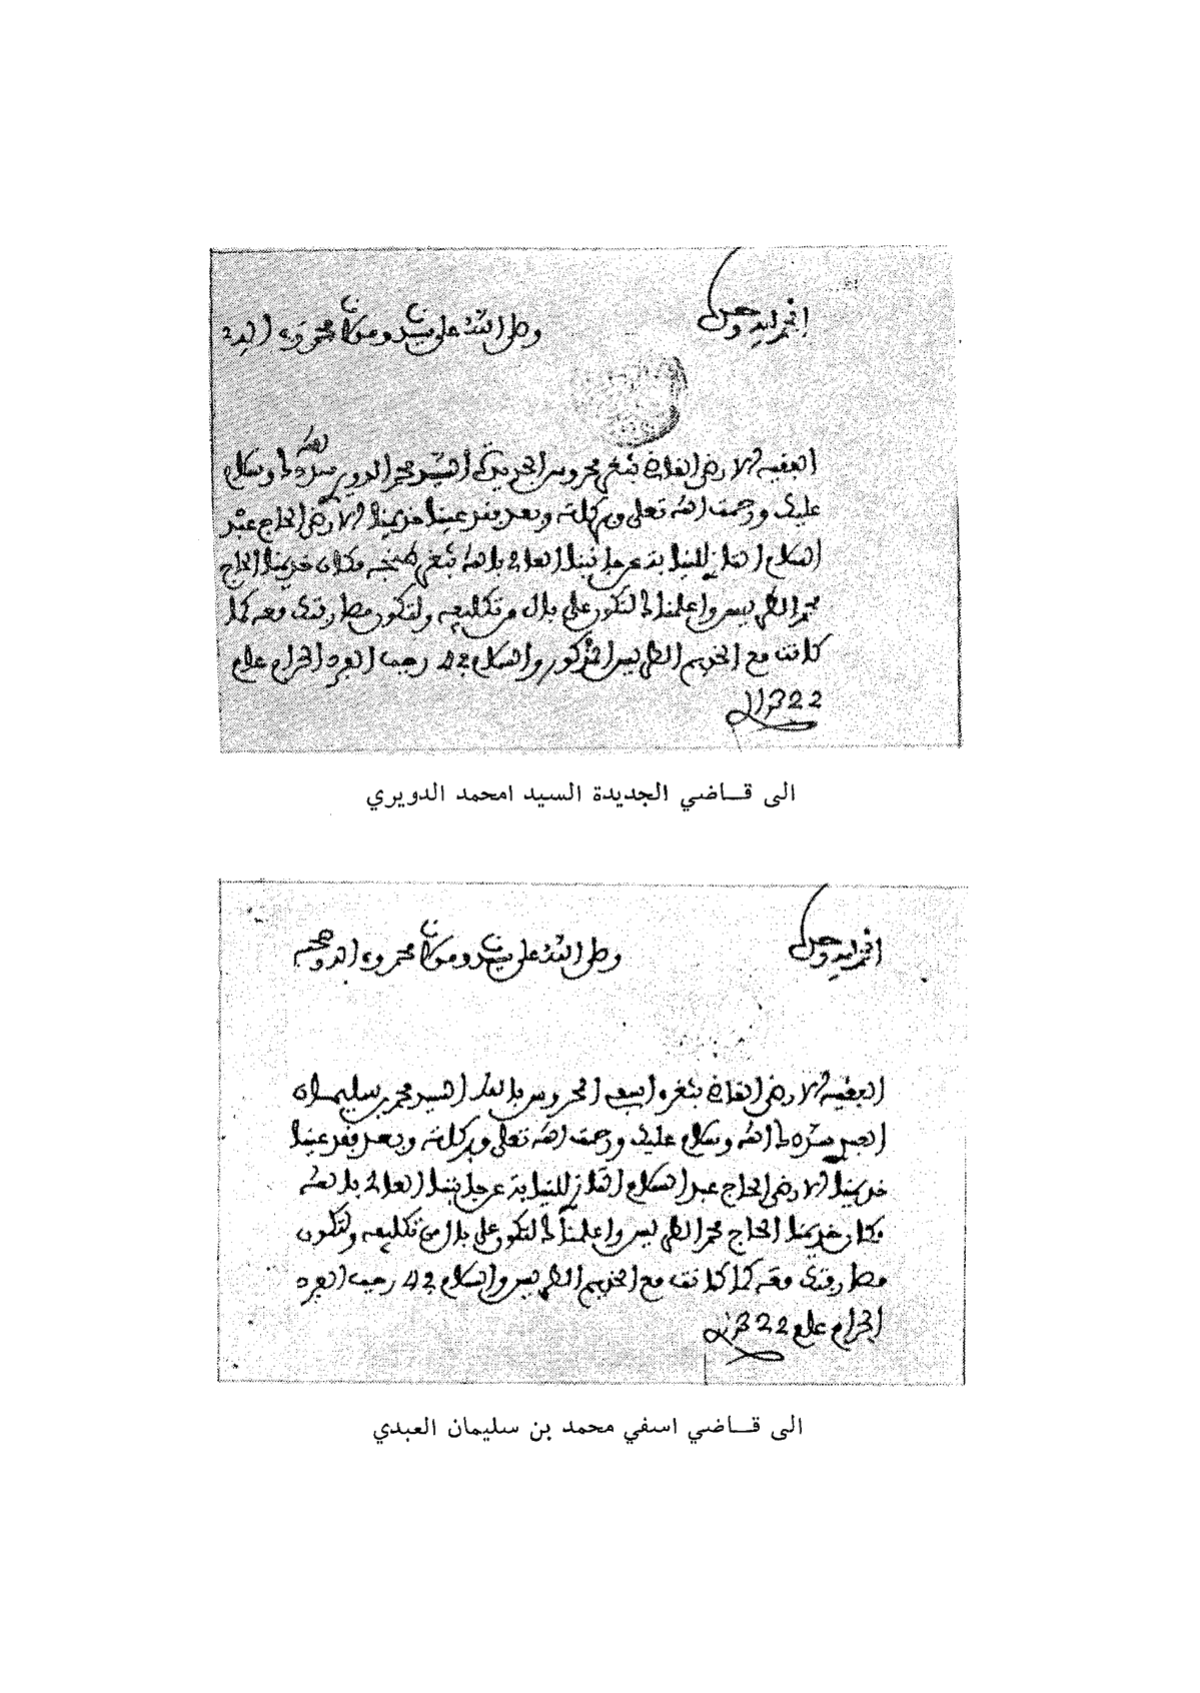 الحمد لله وحده
وصلى الله على سيدنا ومولانا محمد وءاله
الفقيه الارضى القاضي بثغر محروس الجديدة السيد محمد الدويري سددك الله وسلام
عليك ورحمت الله تعالى وبركاته وبعد فقد عينا خديمنا الارضى الحاج عبد
السلام التازي للنيابة عن جانبنا العالي بالله بثغر طنجه مكان خديمنا الحاج
محمد الطريس واعلمناك لتكون على بال من تكليفه ولتكون مصارفتك معه كما
كانت مع الخديم الطريس المذكور والسلام في رجب الفرد الحرام عام
1322
الى قاضي الجديدة السيد امحمد الدويري
الحمد لله وحده
وصلى الله على سيدنا ومولانا محمد وءاله وصحبه
الفقيه الارضى القاضي بثغر اسفي المحروس بالله السيد محمد بن سليمان
العبدي سددك الله وسلام عليك ورحمت الله تعالى وبركاته وبعد فقد عينا
خديمنا الارضى الحاج عبد السلام التازي للنيابة عن جانبنا العالي بالله
مكان خديمنا الحاج محمد الطريس واعلمناك لتكون على بال من تكليفه ولتكون
مصارفتك معه كما كانت مع الخديم الطريس والسلام في رجب الفرد
الحرام عام 1322
الى قاضي اسفي محمد بن سليمان العبدي